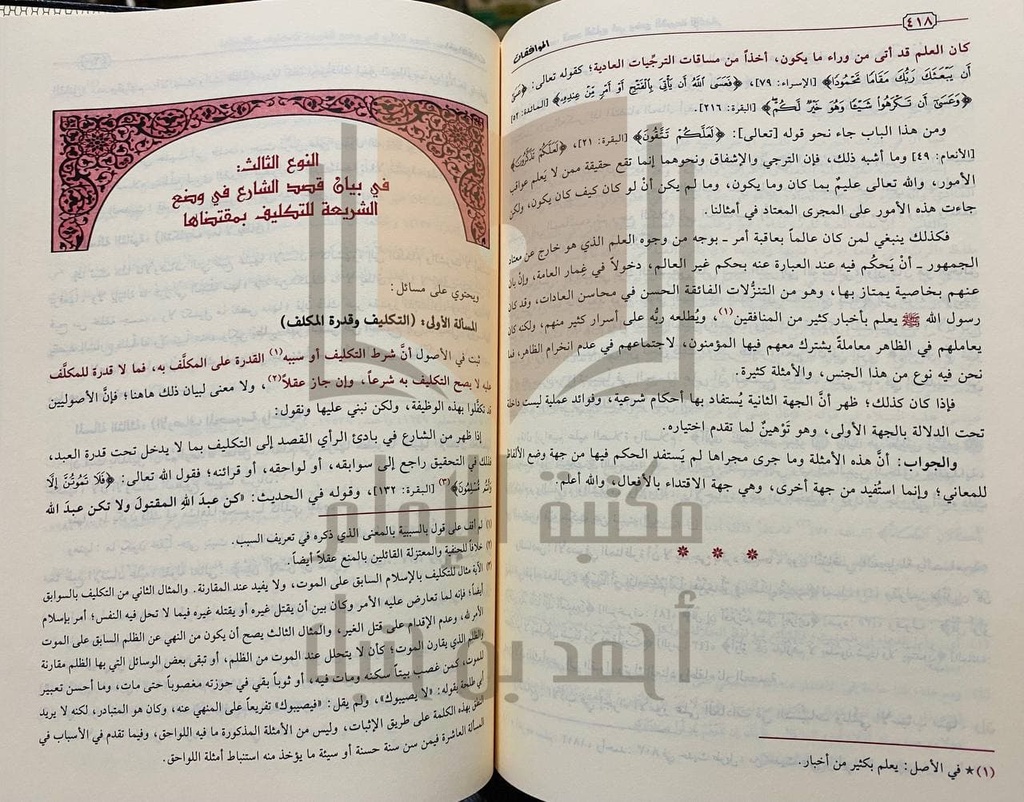 ٤١٨
الموافقات
كان العلم قد أتى من وراء ما يكون، أخذاً من مساقات الترجّيات العادية؛ كقوله تعالى: ﴿عَسَىٰ
أَن يَبْعَثَكَ رَبُّكَ مَقَامًا مَّحْمُودًا﴾ [الإسراء: ٧٩]، ﴿فَعَسَى اللَّهُ أَن يَأْتِيَ بِالْفَتْحِ أَوْ أَمْرٍ مِّنْ عِندِهِ﴾ [المائدة: ٥٢]
﴿وَعَسَىٰ أَن تَكْرَهُوا شَيْئًا وَهُوَ خَيْرٌ لَّكُمْ﴾ [البقرة: ٢١٦].
ومن هذا الباب جاء نحو قوله [تعالى]: ﴿لَعَلَّكُمْ تَتَّقُونَ﴾ [البقرة: ٢١]، ﴿لَعَلَّكُمْ تَذَكَّرُونَ﴾
[الأنعام: ٤٩] وما أشبه ذلك، فإن الترجي والإشفاق ونحوهما إنما تقع حقيقة ممن لا يَعلم عواقب
الأمور، والله تعالى عليمٌ بما كان وما يكون، وما لم يكن أنْ لو كان كيف كان يكون، ولكن
جاءت هذه الأمور على المجرى المعتاد في أمثالنا.
فكذلك ينبغي لمن كان عالماً بعاقبة أمر ـ بوجه من وجوه العلم الذي هو خارج عن معتاد
الجمهور ـ أنْ يَحكُم فيه عند العبارة عنه بحكم غير العالم، دخولاً في غِمار العامة، وإنْ بان
عنهم بخاصية يمتاز بها، وهو من التنزُّلات الفائقة الحسن في محاسن العادات، وقد كان
رسول الله ﷺ يعلم بأخبار كثير من المنافقين(١)، ويُطلعه ربُّه على أسرار كثير منهم، ولكنه كان
يعاملهم في الظاهر معاملةً يشترك معهم فيها المؤمنون، لاجتماعهم في عدم انخرام الظاهر، فما
نحن فيه نوع من هذا الجنس، والأمثلة كثيرة.
فإذا كان كذلك؛ ظهر أنَّ الجهة الثانية يُستفاد بها أحكام شرعية، وفوائد عملية ليست داخلة
تحت الدلالة بالجهة الأولى، وهو تَوْهينٌ لما تقدم اختياره.
والجواب: أنَّ هذه الأمثلة وما جرى مجراها لم يَستفد الحكم فيها من جهة وضع الألفاظ
للمعاني؛ وإنما استُفيد من جهة أخرى، وهي جهة الاقتداء بالأفعال، والله أعلم.
* * *
(١) * في الأصل: يعلم بكثير من أخبار.
النوع الثالث:
في بيان قصد الشارع في وضع
الشريعة للتكليف بمقتضاها
ويحتوي على مسائل:
المسألة الأولى: (التكليف وقدرة المكلف)
ثبت في الأصول أنَّ شرط التكليف أو سببه(١) القدرة على المكلَّف به، فما لا قدرة للمكلَّف
عليه لا يصح التكليف به شرعاً، وإن جاز عقلاً(٢)، ولا معنى لبيان ذلك هاهنا؛ فإنَّ الأصوليين
قد تكفَّلوا بهذه الوظيفة، ولكن نبني عليها ونقول:
إذا ظهر من الشارع في بادئ الرأي القصد إلى التكليف بما لا يدخل تحت قدرة العبد،
فذلك في التحقيق راجع إلى سوابقه، أو لواحقه، أو قرائنه؛ فقول الله تعالى: ﴿فَلَا تَمُوتُنَّ إِلَّا
وَأَنتُم مُّسْلِمُونَ﴾(٣) [البقرة: ١٣٢]، وقوله في الحديث: «كن عبدَ اللهِ المقتولَ ولا تكن عبدَ الله
(١) لم أقف على قول بالسببية بالمعنى الذي ذكره في تعريف السبب.
(٢) خلافاً للحنفية والمعتزلة القائلين بالمنع عقلاً أيضاً.
(٣) الآية مثال للتكليف بالإسلام السابق على الموت، ولا يفيد عند المقارنة. والمثال الثاني من التكليف بالسوابق
أيضاً؛ فإنه لما تعارض عليه الأمر وكان بين أن يقتل غيره أو يقتله غيره فيما لا تحل فيه النفس؛ أمر بإسلام
الأمر لله، وعدم الإقدام على قتل الغير، والمثال الثالث يصح أن يكون من النهي عن الظلم السابق على الموت
والظلم الذي يقارن الموت؛ كأن لا يتحلل عند الموت من الظلم، أو تبقى بعض الوسائل التي بها الظلم مقارنة
للموت، كمن غصب بيتاً سكنه ومات فيه، أو ثوباً بقي في حوزته مغصوباً حتى مات، وما أحسن تعبير
أبي طلحة بقوله: «لا يصيبوك»، ولم يقل: «فيصيبوك» تفريعاً على المنهي عنه، وكان هو المتبادر، لكنه لا يريد
النطق بهذه الكلمة على طريق الإثبات، وليس من الأمثلة المذكورة ما فيه اللواحق، وفيما تقدم في الأسباب في
المسألة العاشرة فيمن سن سنة حسنة أو سيئة ما يؤخذ منه استنباط أمثلة اللواحق.
مكتبة الإمام
أحمد بن حنبل